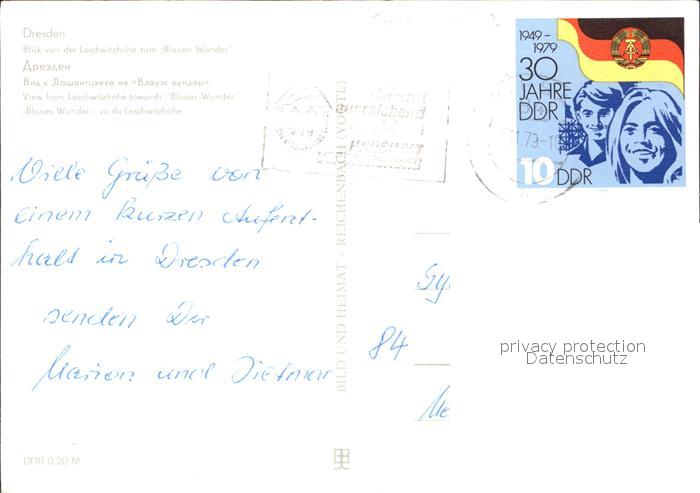 Dresden
Blick von der Loschwitzhöhe zum „Blauen Wunder"
Дрезден
Вид с Лошвитцхехе на «Блауэс вундер»
View from Loschwitzhohe towards "Blaues Wunder"
«Blaues Wunder», vu du Loschwitzhohe
Viele Grüße von
einem kurzen Aufent-
halt in Dresden
senden Dir
Marion und Dietmar
DDR 0,20 M
BILD UND HEIMAT · REICHENBACH (VOGTL)
1949–
1979
30
JAHRE
DDR
10 DDR
11.79
84
privacy protection
Datenschutz